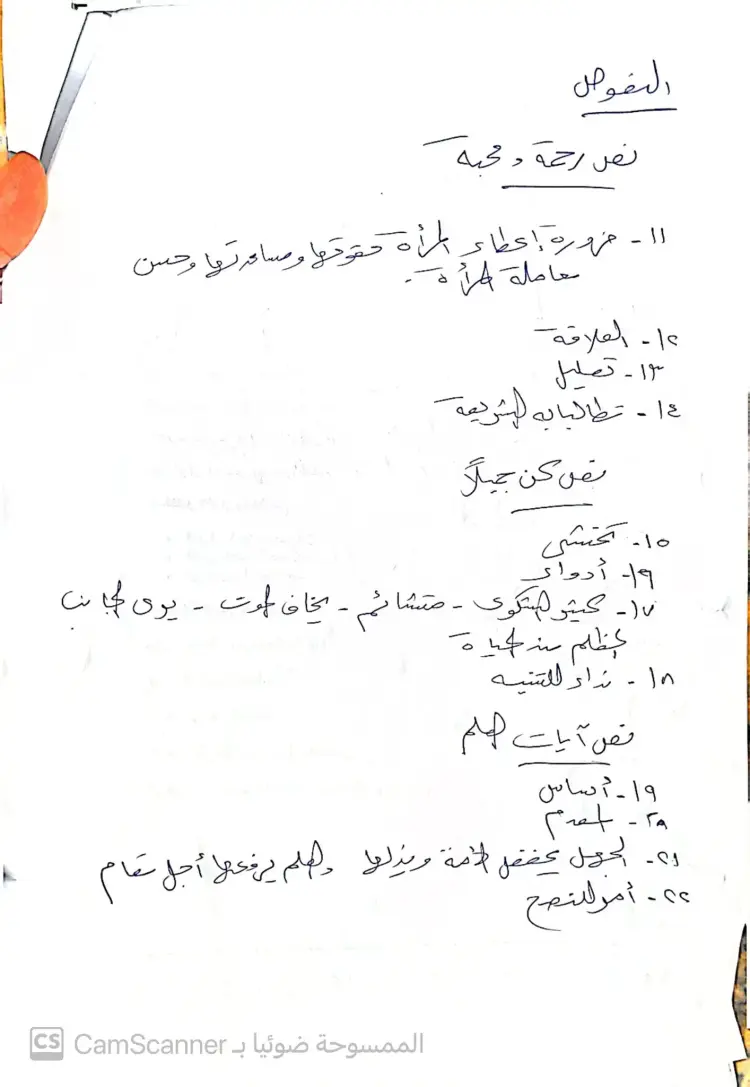 النصوص
نص رحمة ومحبة
١١- ضرورة إعطاء المرأة حقوقها ومساعدتها وحسن
معاملة المرأة.
١٢- العلاقة
١٣- تعليل
١٤- تطالبنا به الشريعة
نص كن جميلاً
١٥- تخشى
١٦- أدواء
١٧- كثير الشكوى - متشائم - يخاف الموت - يرى الجانب
المظلم من الحياة
١٨- نداء للتنبيه
نص آيات العلم
١٩- أساس
٢٠-
٢١- الجهل يخفض الأمة ويذلها والعلم يرفعها أجل مقام
٢٢- أمر للنصح
CS CamScanner الممسوحة ضوئيا بـ